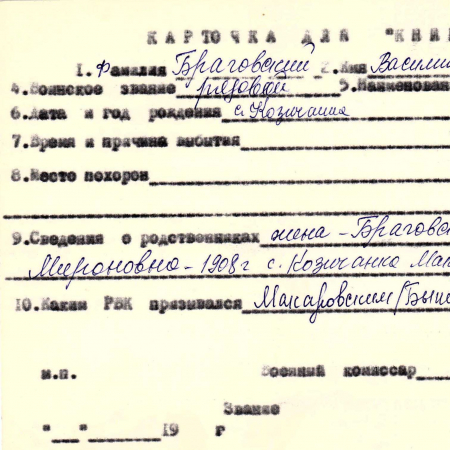 КАРТОЧКА ДЛЯ "КНИ
1.Фамилия Браговский 2.Имя Васили
4.Воинское звание рядовой 5.Наименован
6.Дата и год рождения с. Козичанка
7.Время и причина выбытия
8.Место похорон
9.Сведения о родственниках жена - Браговс
Мироновна - 1908 г с. Козичанка Мак
10.Каким РВК призывался Макаровским (Быше
м.п. Военный комиссар
Звание
"__"______19 г